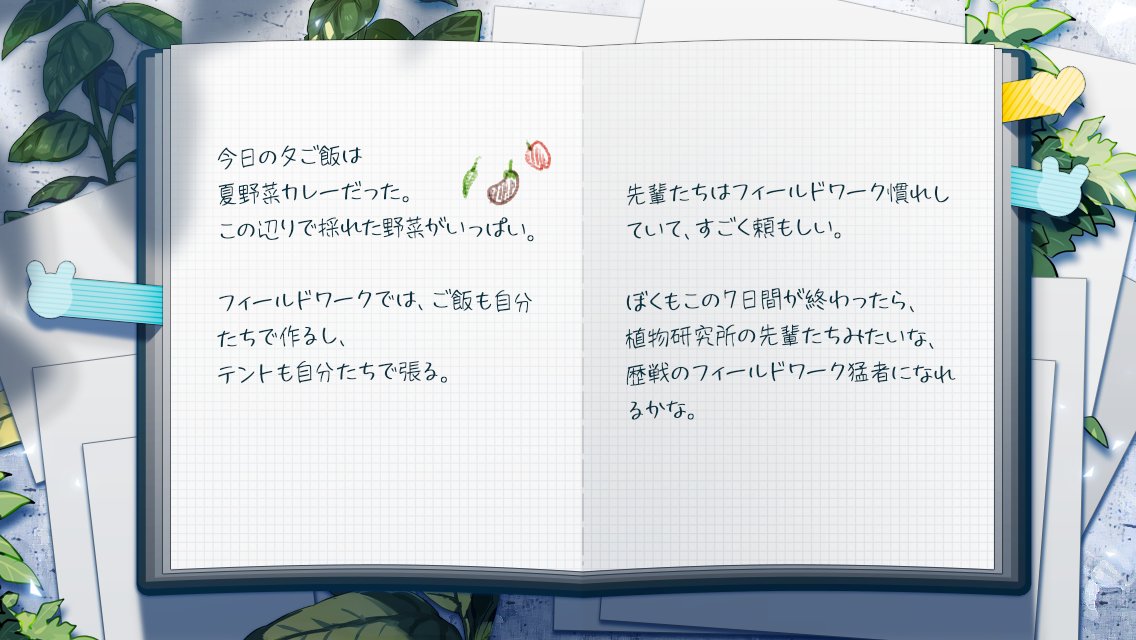 今日の夕ご飯は
夏野菜カレーだった。
この辺りで採れた野菜がいっぱい。
フィールドワークでは、ご飯も自分
たちで作るし、
テントも自分たちで張る。
先輩たちはフィールドワーク慣れし
ていて、すごく頼もしい。
ぼくもこの7日間が終わったら、
植物研究所の先輩たちみたいな、
歴戦のフィールドワーク猛者になれ
るかな。